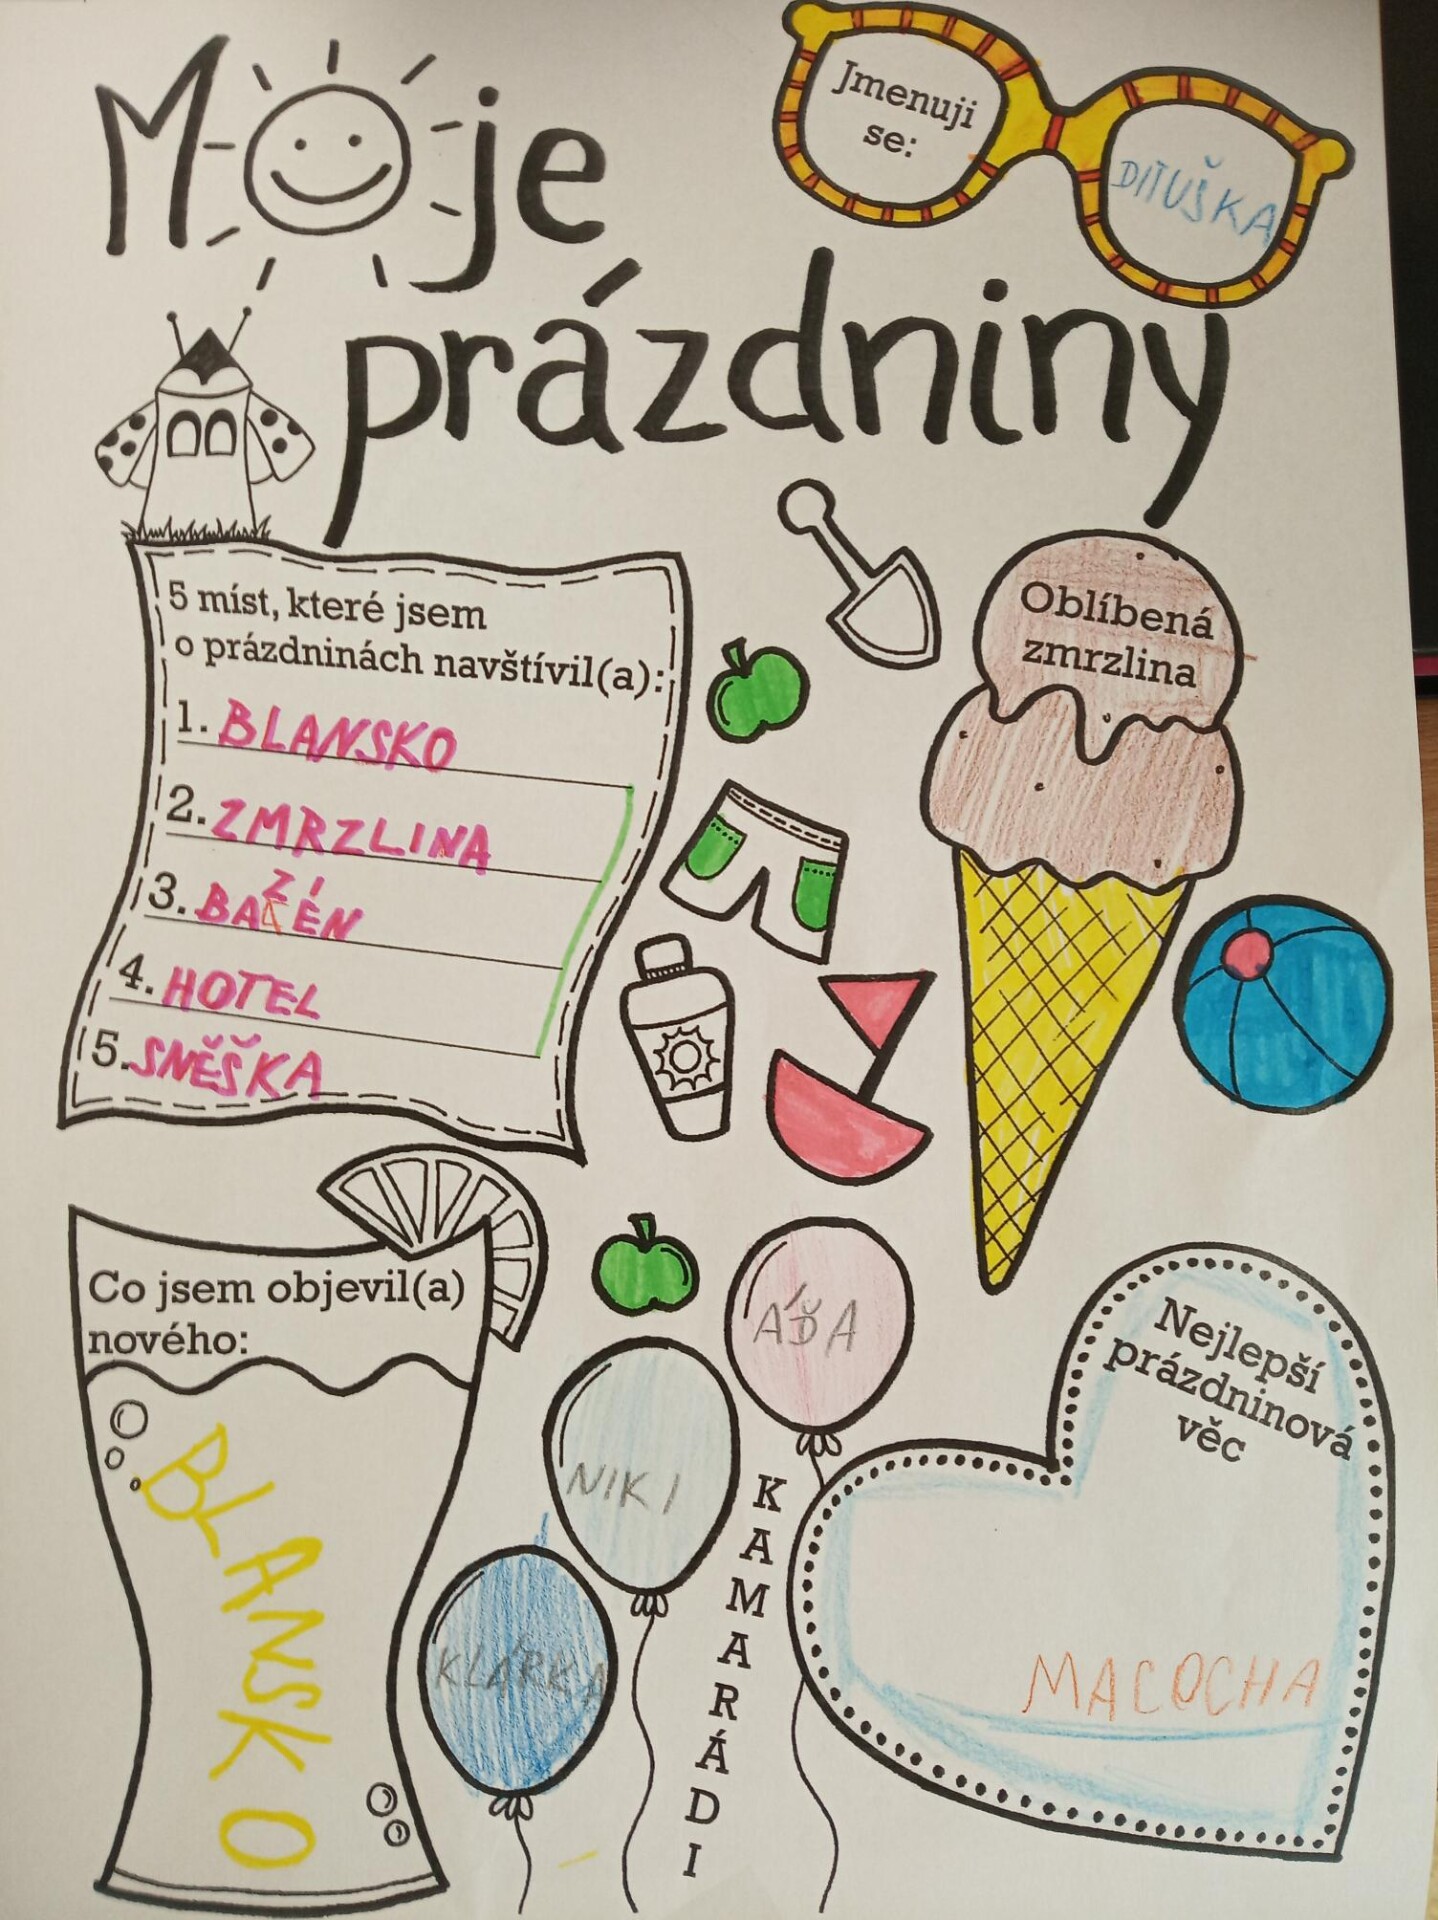 Moje
prázdniny
Jmenuji
se:
DIŤUŠKA
5 míst, které jsem
o prázdninách navštívil(a):
1. BLANSKO
2. ZMRZLINA
3. BAZÉN
4. HOTEL
5. SNĚŠKA
Oblíbená
zmrzlina
Co jsem objevil(a)
nového:
BLANSKO
KAMARÁDI
ÁĎA
NIKI
KLÁRKA
Nejlepší
prázdninová
věc
MACOCHA